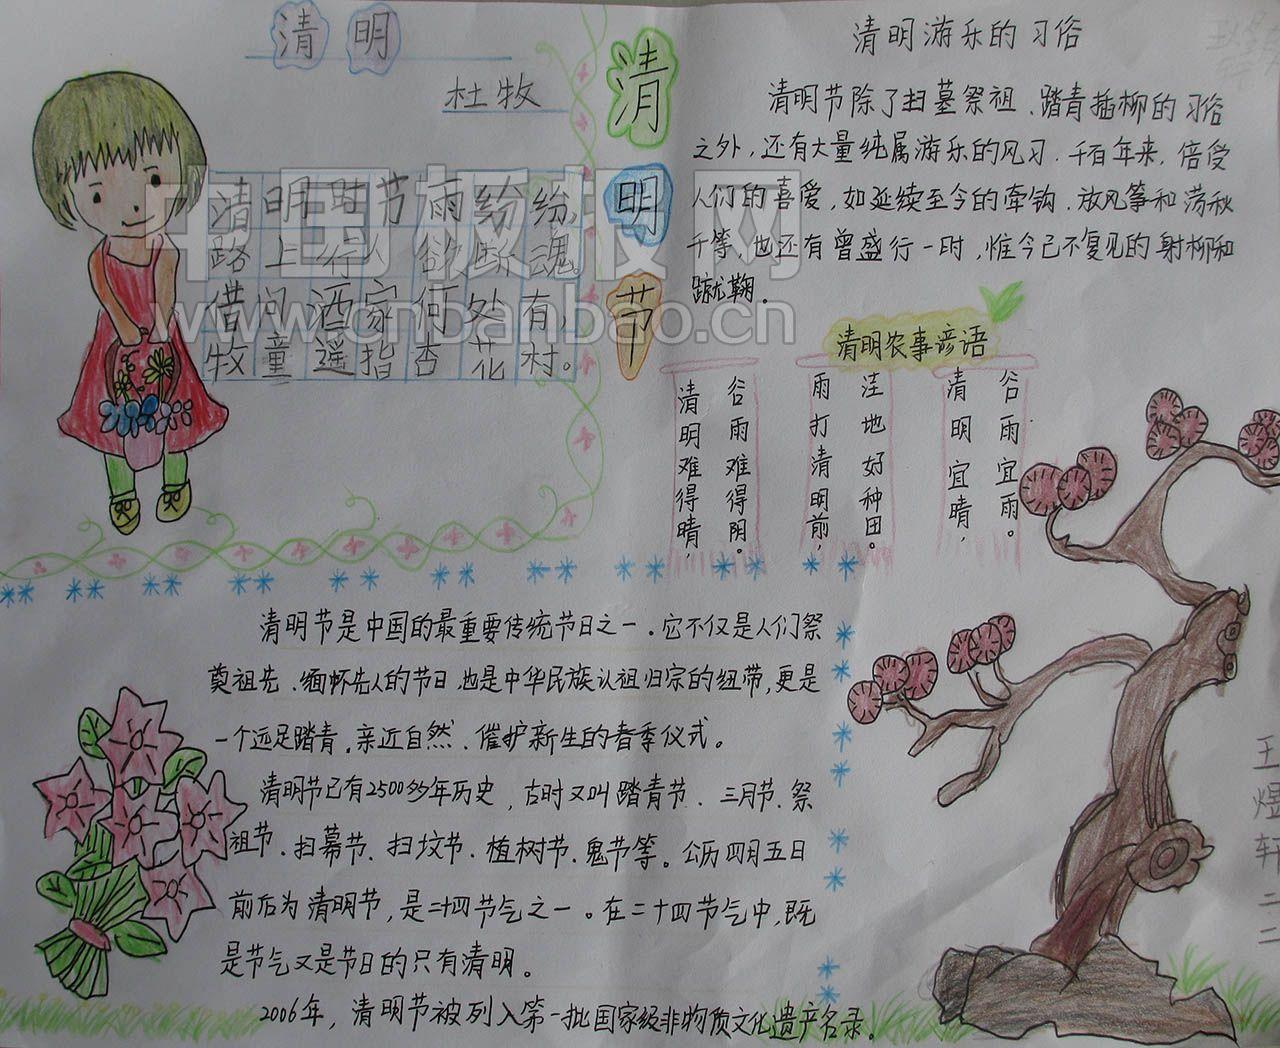 清明
杜牧
清明时节雨纷纷,
路上行人欲断魂。
借问酒家何处有,
牧童遥指杏花村。
清明节
清明游乐的习俗
清明节除了扫墓祭祖、踏青插柳的习俗
之外,还有大量纯属游乐的风习.千百年来,倍受
人们的喜爱,如延续至今的牵钩、放风筝和荡秋
千等,也还有曾盛行一时,惟今已不复见的射柳和
蹴鞠。
清明农事谚语
清明难得晴,
谷雨难得阴。
雨打清明前,
洼地好种田。
清明宜晴,
谷雨宜雨。
清明节是中国的最重要传统节日之一。它不仅是人们祭
奠祖先、缅怀先人的节日,也是中华民族认祖归宗的纽带,更是
一个远足踏青,亲近自然、催护新生的春季仪式。
清明节已有2500多年历史,古时又叫踏青节、三月节、祭
祖节、扫幕节、扫坟节、植树节、鬼节等。公历四月五日
前后为清明节,是二十四节气之一。在二十四节气中,既
是节气又是节日的只有清明。
2006年,清明节被列入第一批国家级非物质文化遗产名录。
王煜轩二二
中国板报网
www.cnbanbao.cn